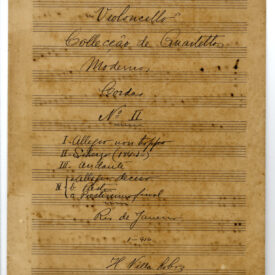 Violoncello
Collecção de Quartettos
Modernos
Cordas
Nº II
I - Allegro non troppo
II - Scherzo
III - Andante
IV - Allegro deciso
final
Rio de Janeiro
H. Villa Lobos